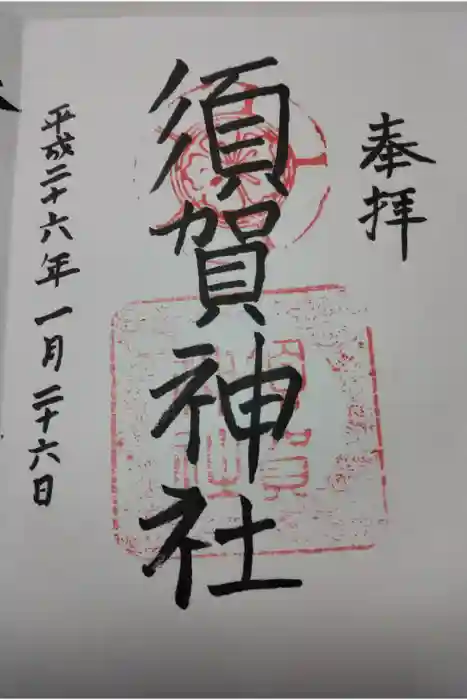 奉拝
須賀神社
平成二十六年一月二十六日